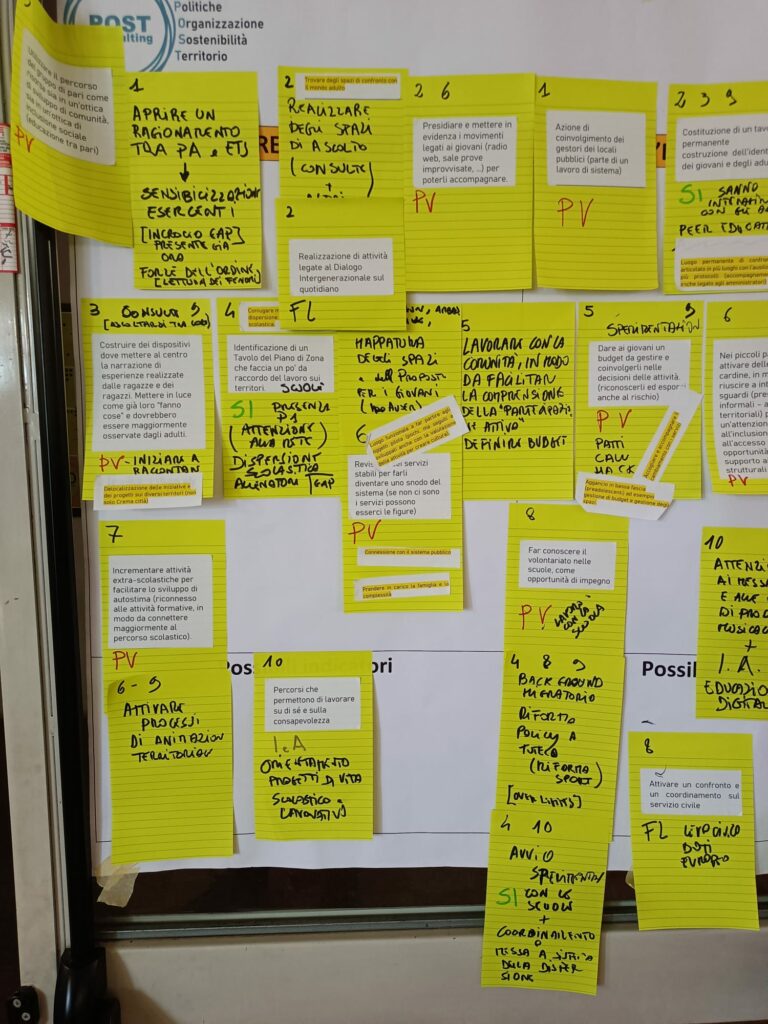 POST
Consulting
Politiche
Organizzazione
Sostenibilità
Territorio
Utilizzare il percorso
del gruppo di pari come
risorsa in un'ottica
di sviluppo di comunità,
sia in un'ottica di
inclusione sociale
(educazione tra pari)
PV
1
APRIRE UN
RAGIONAMENTO
TRA PA e ETS
SENSIBILIZZAZIONE
ESERCENTI
[INCROCIO GAP]
PRESENTE GIÀ
ORA
FORZE DELL'ORDINE
[LETTURA DEI FENOMENI]
2
Trovare degli spazi di confronto con
il mondo adulto
REALIZZARE
DEGLI SPAZI
DI ASCOLTO
(CONSULTE)
+
2
Realizzazione di attività
legate al Dialogo
Intergenerazionale sul
quotidiano
FL
2 6
Presidiare e mettere in
evidenza i movimenti
legati ai giovani (radio
web, sale prove
improvvisate, ..) per
poterli accompagnare.
PV
1
Azione di
coinvolgimento dei
gestori dei locali
pubblici (parte di un
lavoro di sistema)
PV
2 3 9
Costituzione di un tavo
permanente
costruzione dell'ident
dei giovani e degli adu
SI
PEER EDUCAT
Luogo permanente di confron
articolato in più luoghi con l'ausilio
più protocolli (accompagnamen
anche legato agli amministratori)
3 CONSULTE 9
Costruire dei dispositivi
dove mettere al centro
la narrazione di
esperienze realizzate
dalle ragazze e dei
ragazzi. Mettere in luce
come già loro "fanno
cose" e dovrebbero
essere maggiormente
osservate dagli adulti.
PV - INIZIARE A
RACCONTARE
Delocalizzazione delle iniziative e
dei progetti sui diversi territori (non
solo Crema città)
4
Coniugare
dispersione
scolastica.
Identificazione di un
Tavolo del Piano di Zona
che faccia un po' da
raccordo del lavoro sui
territori.
SCUOLE
SI PRESENZA
(ATTENZIONE
ALLA RETE)
DISPERSIONE
SCOLASTICA
ALLENATORI / GAP
MAPPATURA
DEGLI SPAZI
e delle PROPOSTE
PER I GIOVANI
6
servizi
stabili per farli
diventare uno snodo del
sistema (se non ci sono
i servizi possono
esserci le figure)
PV
Connessione con il sistema pubblico
Prendere in carico la famiglia e la
complessità
5
LAVORARE CON LA
COMUNITÀ, IN MODO
DA FACILITARE
LA COMPRENSIONE
DELLA "PARTECIPAZIONE
ATTIVA"
DEFINIRE BUDGET
5 9
SPERIMENTAZIONI
Dare ai giovani un
budget da gestire e
coinvolgerli nelle
decisioni delle attività.
(riconoscerli ed esporsi
anche al rischio)
PV
PATTI
CALL
HACK
Aggancio in bassa fascia
(preadolescenti) ad esempio
gestione di budget e gestione degli
spazi.
6
Nei piccoli p
attività della
cardine, in m
riuscire a inte
sguardi (pres
informali – a
territoriali) p
un'attenzion
all'inclusione
all'accesso
opportunità
supporto al
strutturali
PV
7
Incrementare attività
extra-scolastiche per
facilitare lo sviluppo di
autostima (riconnesso
alle attività formative, in
modo da connettere
maggiormente al
percorso scolastico).
PV
8
Far conoscere il
volontariato nelle
scuole, come
opportunità di impegno
PV LAVORO
CON LA
SCUOLA
10
ATTENZIO
AI MESSA
E ALLE
DI PROD
MUSICAL
+
I.A.
EDUCAZIO
DIGITAL
Possibili indicatori
Possi
6-9
ATTIVARE
PROCESSI
DI ANIMAZIONE
TERRITORIALE
10
Percorsi che
permettono di lavorare
su di sé e sulla
consapevolezza
I.e A
ORIENTAMENTO
PROGETTI DI VITA
SCOLASTICO e
LAVORATIVO
4 8 9
BACKGROUND
MIGRATORIO
POLICY A
TUTELA
(RIFORMA
SPORT)
[OVER LIMITS]
8
Attivare un confronto e
un coordinamento sul
servizio civile
FL
EUROPEO
4 10
AVVIO
SPERIMENTAZIONE
SI CON LE
SCUOLE
+
COORDINAMENTO
MESSA A SISTEMA
DELLA DISPER
SIONE